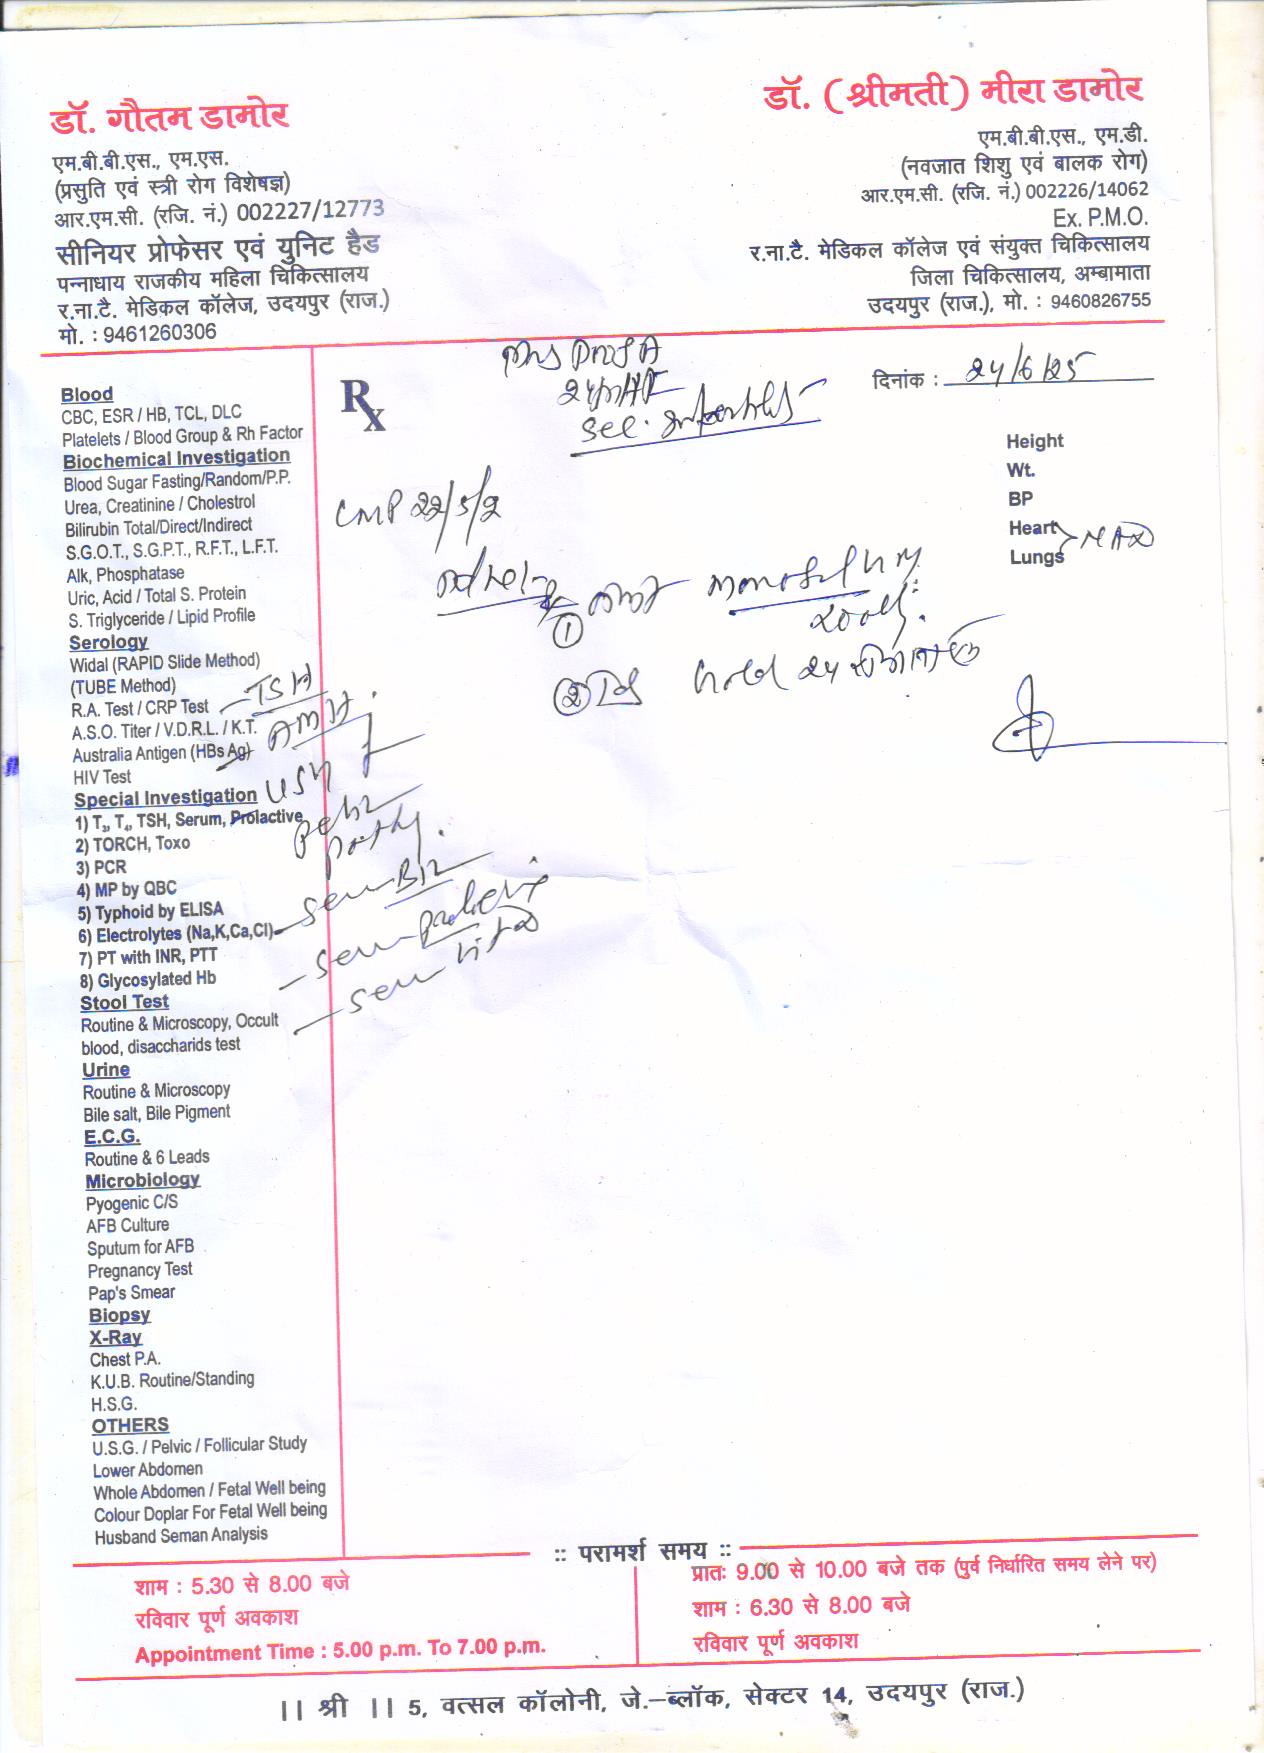 डॉ. गौतम डामोर
एम.बी.बी.एस., एम.एस.
(प्रसुति एवं स्त्री रोग विशेषज्ञ)
आर.एम.सी. (रजि. नं.) 002227/12773
सीनियर प्रोफेसर एवं युनिट हैड
पन्नाधाय राजकीय महिला चिकित्सालय
र.ना.टै. मेडिकल कॉलेज, उदयपुर (राज.)
मो. : 9461260306
डॉ. (श्रीमती) मीरा डामोर
एम.बी.बी.एस., एम.डी.
(नवजात शिशु एवं बालक रोग)
आर.एम.सी. (रजि. नं.) 002226/14062
Ex. P.M.O.
र.ना.टै. मेडिकल कॉलेज एवं संयुक्त चिकित्सालय
जिला चिकित्सालय, अम्बामाता
उदयपुर (राज.), मो. : 9460826755
Blood
CBC, ESR / HB, TCL, DLC
Platelets / Blood Group & Rh Factor
Biochemical Investigation
Blood Sugar Fasting/Random/P.P.
Urea, Creatinine / Cholestrol
Bilirubin Total/Direct/Indirect
S.G.O.T., S.G.P.T., R.F.T., L.F.T.
Alk, Phosphatase
Uric, Acid / Total S. Protein
S. Triglyceride / Lipid Profile
Serology
Widal (RAPID Slide Method)
(TUBE Method)
R.A. Test / CRP Test
A.S.O. Titer / V.D.R.L. / K.T.
Australia Antigen (HBs Ag)
HIV Test
Special Investigation
1) T₃, T₄, TSH, Serum, Prolactive
2) TORCH, Toxo
3) PCR
4) MP by QBC
5) Typhoid by ELISA
6) Electrolytes (Na,K,Ca,Cl)
7) PT with INR, PTT
8) Glycosylated Hb
Stool Test
Routine & Microscopy, Occult
blood, disaccharids test
Urine
Routine & Microscopy
Bile salt, Bile Pigment
E.C.G.
Routine & 6 Leads
Microbiology
Pyogenic C/S
AFB Culture
Sputum for AFB
Pregnancy Test
Pap's Smear
Biopsy
X-Ray
Chest P.A.
K.U.B. Routine/Standing
H.S.G.
OTHERS
U.S.G. / Pelvic / Follicular Study
Lower Abdomen
Whole Abdomen / Fetal Well being
Colour Doplar For Fetal Well being
Husband Seman Analysis
TSH
AMH.
B12
Rx
Mrs
दिनांक : 24/6/25
Height
Wt.
BP
Heart
Lungs
NAD
LMP 22/5/2
①
②
:: परामर्श समय ::
शाम : 5.30 से 8.00 बजे
रविवार पूर्ण अवकाश
Appointment Time : 5.00 p.m. To 7.00 p.m.
प्रातः 9.00 से 10.00 बजे तक (पुर्व निर्धारित समय लेने पर)
शाम : 6.30 से 8.00 बजे
रविवार पूर्ण अवकाश
|| श्री || 5, वत्सल कॉलोनी, जे.–ब्लॉक, सेक्टर 14, उदयपुर (राज.)